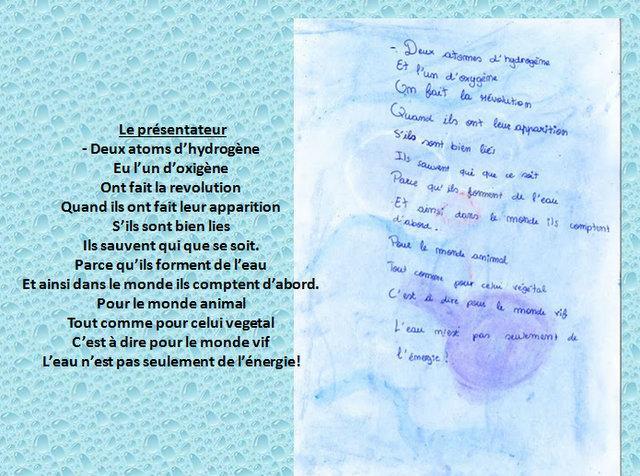 Le présentateur
- Deux atoms d'hydrogène
Eu l'un d'oxigène
Ont fait la revolution
Quand ils ont fait leur apparition
S'ils sont bien lies
Ils sauvent qui que se soit.
Parce qu'ils forment de l'eau
Et ainsi dans le monde ils comptent d'abord.
Pour le monde animal
Tout comme pour celui vegetal
C'est à dire pour le monde vif
L'eau n'est pas seulement de l'énergie!
- Deux atomes d'hydrogène
Et l'un d'oxygène
On fait la révolution
Quand ils ont leur apparition
S'ils sont bien liés
Ils sauvent qui que ce soit
Parce qu'ils forment de l'eau
Et ainsi dans le monde ils comptent
d'abord.
Pour le monde animal
Tout comme pour celui végétal
C'est à dire pour le monde vif
L'eau n'est pas seulement de
l'énergie!